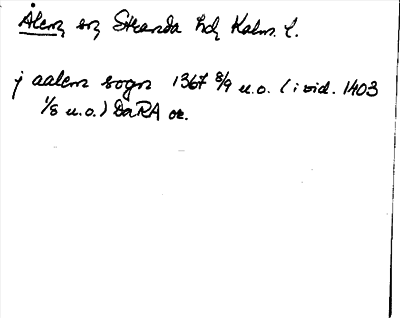 Ålem sn Stranda hd Kalm. l.
j aalem sogn 1367 8/9 u.o. (i vid. 1403
1/8 u.o.) DaRA or.